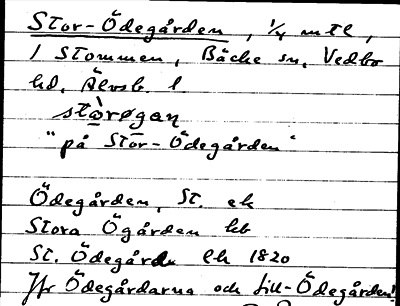 Stor-Ödegården, 1/4 mtl,
1 Stommen, Bäcke sn, Vedbo
hd, Älvsb. l
stòrøgan
"på Stor-Ödegården"
Ödegården, St. ek
Stora Ögården hb
St. Ödegård lk 1820
Jfr Ödegårdarna och Lill-Ödegården!